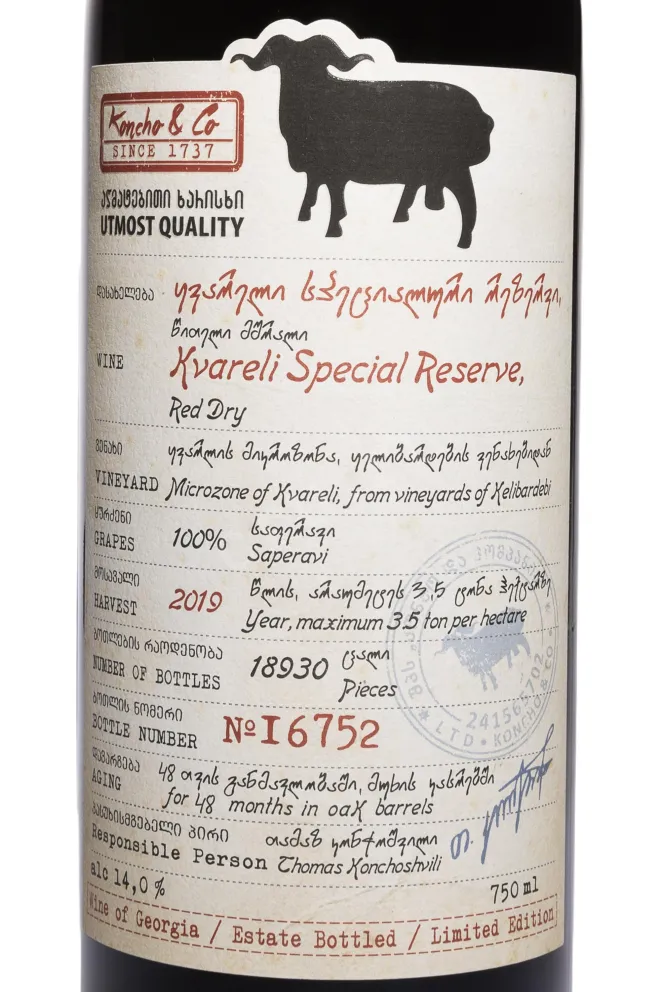 Koncho & Co
SINCE 1737
აღმატებითი ხარისხი
UTMOST QUALITY
დასახელება
ყვარელი სპეციალური რეზერვი,
წითელი მშრალი
WINE
Kvareli Special Reserve,
Red Dry
ვენახი
ყვარლის მიკროზონა, ყელიბარდების ვენახებიდან
VINEYARD
Microzone of Kvareli, from vineyards of Kelibardebi
ყურძენი
GRAPES
100%
საფერავი
Saperavi
მოსავალი
HARVEST
2019
წლის, არაუმეტეს 3,5 ტონა ჰექტარზე
Year, maximum 3.5 ton per hectare
ბოთლების რაოდენობა
NUMBER OF BOTTLES
18930
ცალი
Pieces
ბოთლის ნომერი
BOTTLE NUMBER
№I6752
დავარგება
AGING
48 თვის განმავლობაში, მუხის კასრებში
for 48 months in oak barrels
პასუხისმგებელი პირი
Responsible Person
თამაზ კონჭოშვილი
Thomas Konchoshvili
alc 14,0 %
750 ml
Wine of Georgia / Estate Bottled / Limited Edition
241565702
* LTD • KONCHO & CO *